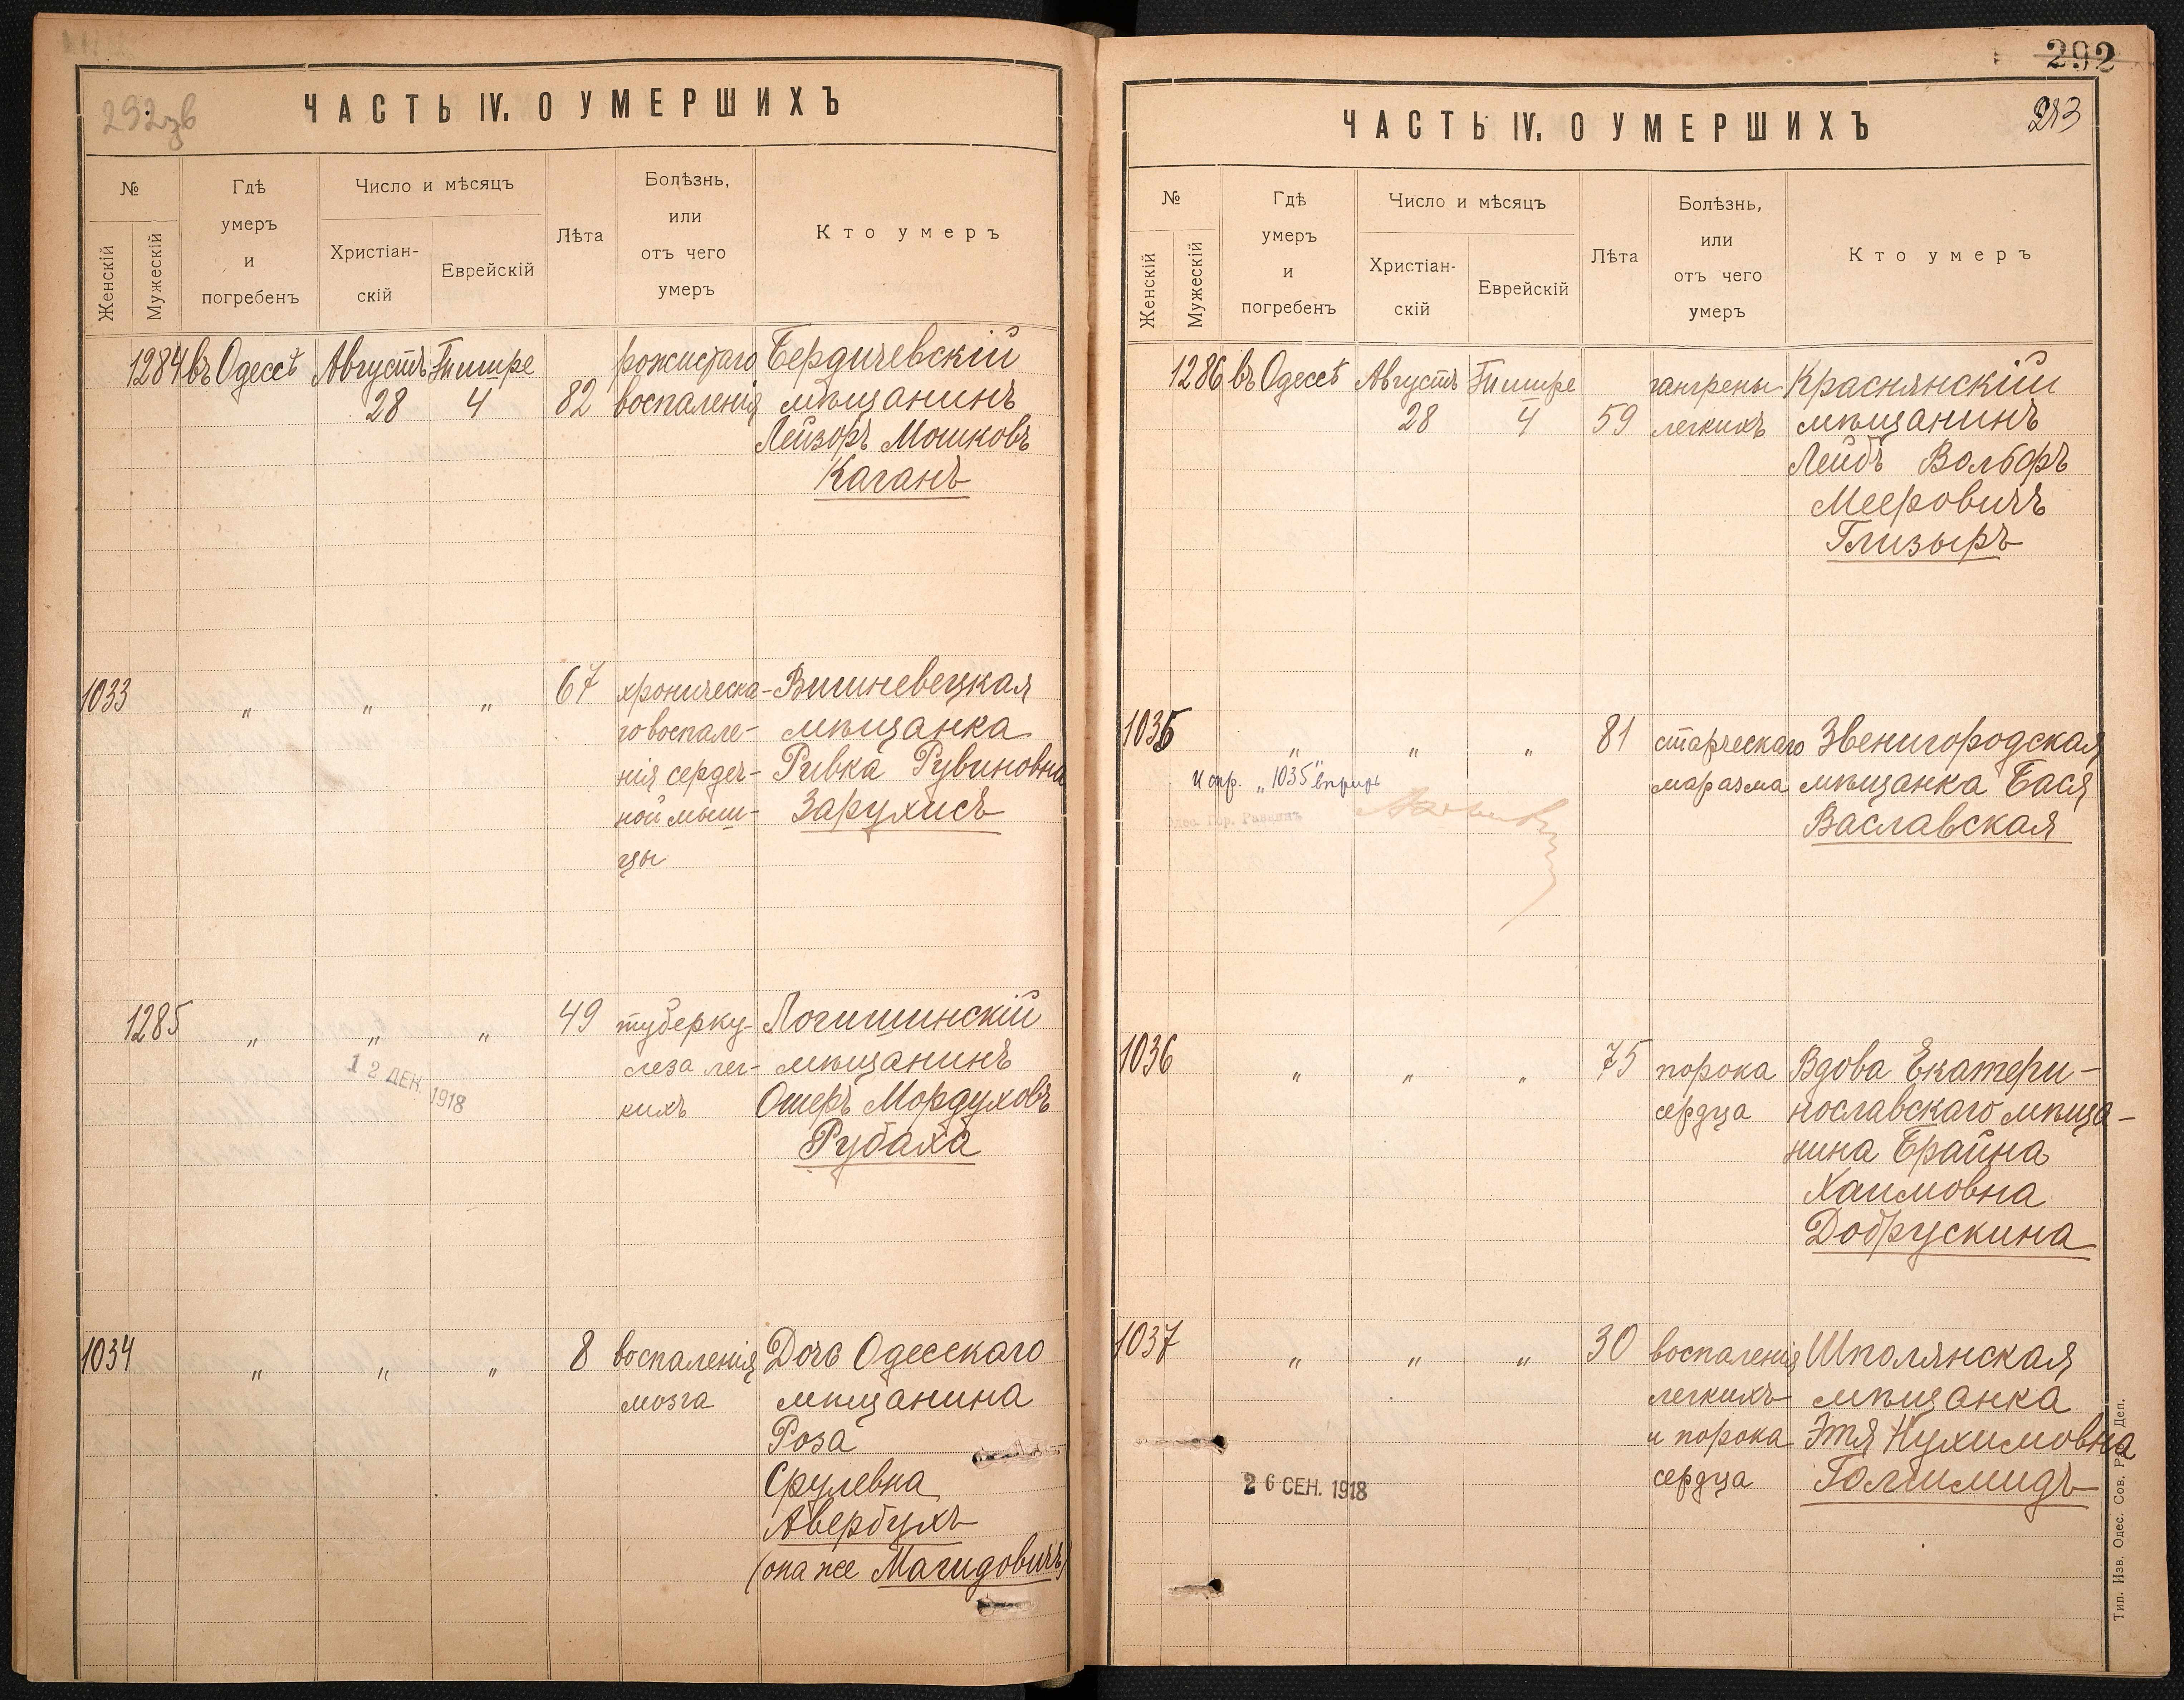 292зв
ЧАСТЬ IV. О УМЕРШИХЪ
№
Женскій
Мужескій
Гдѣ
умеръ
и
погребенъ
Число и мѣсяцъ
Христіан-
скій
Еврейскій
Лѣта
Болѣзнь,
или
отъ чего
умеръ
Кто умеръ
1284 въ Одессѣ Августъ Тишре рожистаго Бердичевскій
28 4 82 воспаленія мѣщанинъ
Лейзоръ Мошковъ
Каганъ
1033 " " " 67 хроническа- Вишневецкая
го воспале- мѣщанка
нія сердеч- Ривка Рувиновна
ной мыш- Зарухисъ
цы
1285 " " " 49 туберку- Логишинскій
леза лег- мѣщанинъ
кихъ Ошеръ Мордуховъ
Рубаха
12 ДЕК. 1918
1034 " " " 8 воспаленія Дочь Одесскаго
мозга мѣщанина
Роза
Срулевна
Авербухъ
(она же Магидовичъ)
292
293
ЧАСТЬ IV. О УМЕРШИХЪ
№
Женскій
Мужескій
Гдѣ
умеръ
и
погребенъ
Число и мѣсяцъ
Христіан-
скій
Еврейскій
Лѣта
Болѣзнь,
или
отъ чего
умеръ
Кто умеръ
1286 въ Одессѣ Августъ Тишре гангрены Краснянскій
28 4 59 легкихъ мѣщанинъ
Лейбъ Вольфъ
Мееровичъ
Глизыръ
1035 " " " 81 старческаго Звенигородская
маразма мѣщанка Бася
Ваславская
Испр. „1035"
Гор. Раввинъ
1036 " " " 75 порока Вдова Екатери-
сердца нославскаго мѣща-
нина Брайна
Хаимовна
Добрускина
1037 " " " 30 воспаленія Шполянская
легкихъ мѣщанка
и порока Этя Нухимовна
сердца Голшмидъ
26 СЕН. 1918
Тип. Изв. Одес. Сов. Р. Деп.